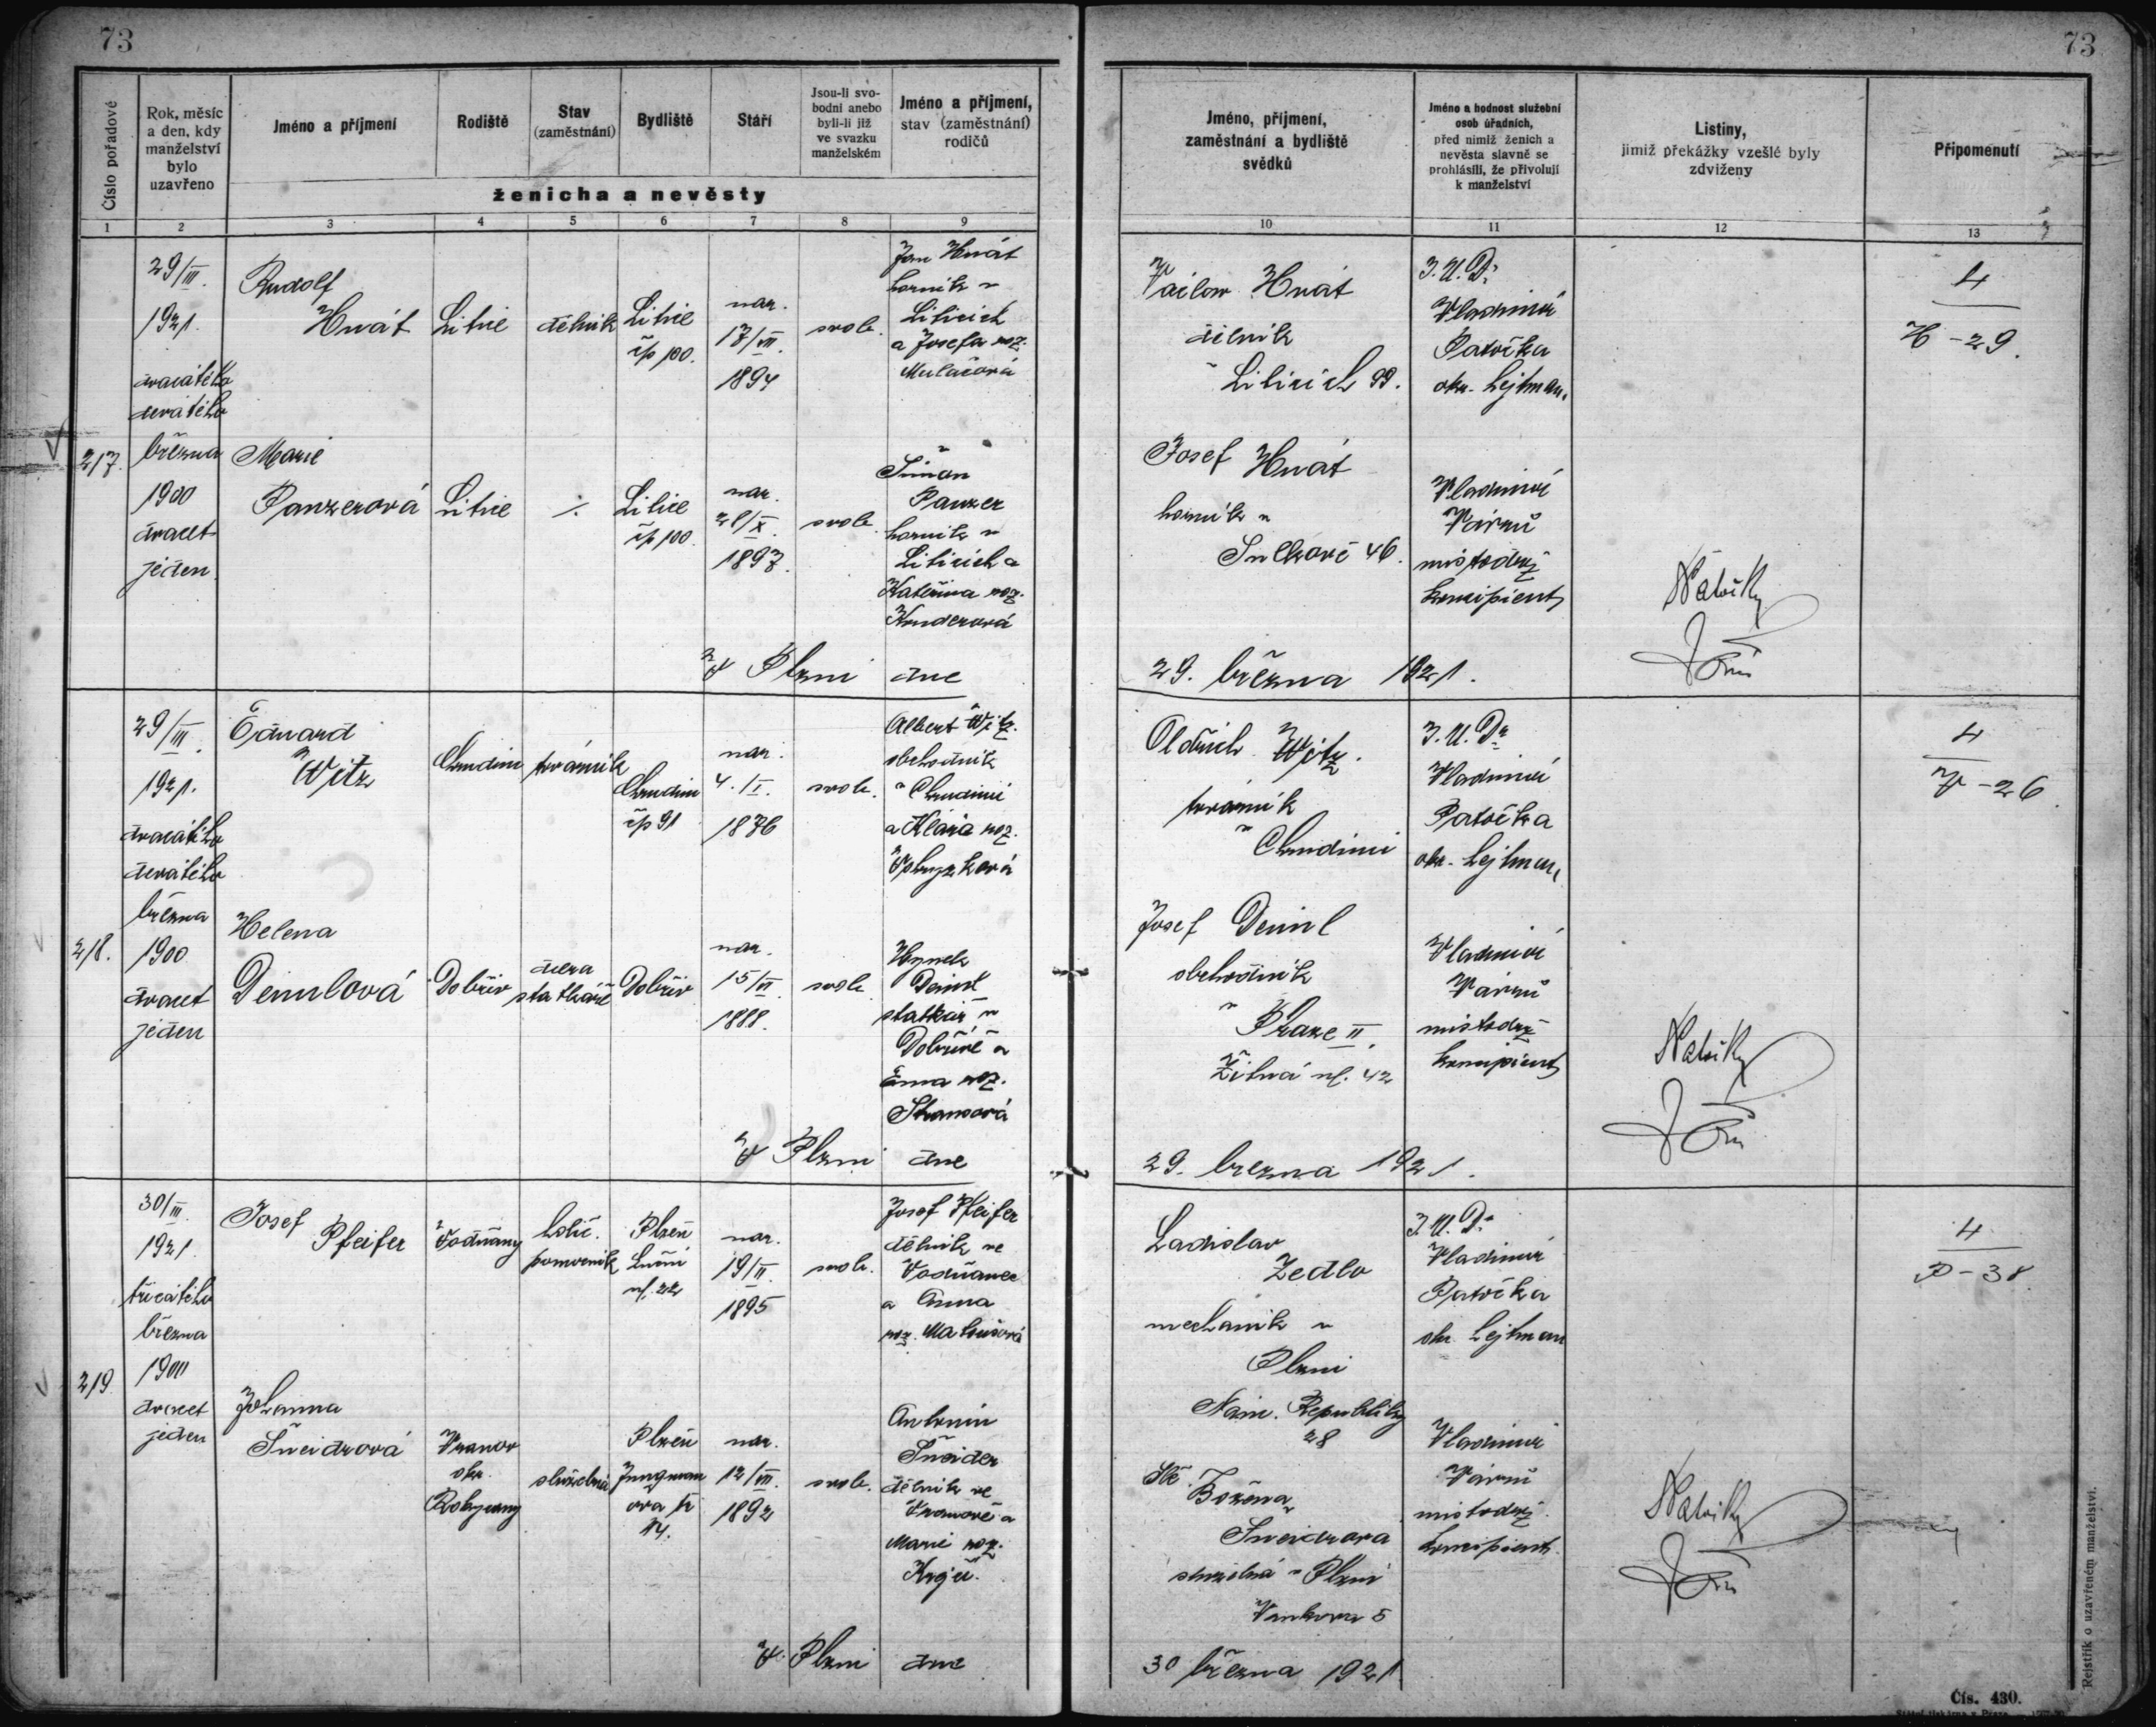 73
73
Číslo pořadové
Rok, měsíc
a den, kdy
manželství
bylo
uzavřeno
Jméno a příjmení
Rodiště
Stav
(zaměstnání)
Bydliště
Stáří
Jsou-li svo-
bodni anebo
byli-li již
ve svazku
manželském
Jméno a příjmení,
stav (zaměstnání)
rodičů
ženicha a nevěsty
1 2 3 4 5 6 7 8 9
Jméno, příjmení,
zaměstnání a bydliště
svědků
Jméno a hodnost služební
osob úřadních,
před nimiž ženich a
nevěsta slavně se
prohlásili, že přivolují
k manželství
Listiny,
jimiž překážky vzešlé byly
zdviženy
Připomenutí
10 11 12 13
217.
29/III.
1921.
dvacátého
devátého
března
1900
dvacet
jeden
Rudolf
Hvát
Litice
dělník
Litice
čp 100.
nar.
17/VII.
1894
svob.
Jan Hvát
horník v
Liticích
a Josefa roz.
Mulačová
Marie
Panzerová
Litice
Litice
čp 100.
nar.
28/X.
1897.
svob.
Šimon
Panzer
horník v
Liticích a
Kateřina roz.
V Plzni dne
Václav Hvát
dělník
v Liticích 99.
Josef Hvát
horník v
Sulkově 46.
29. března 1921.
J.U.Dr
Vladimír
Patočka
okr. hejtman
Vladimír
místodrž
koncipient
4
H - 29.
218.
29/III.
1921.
dvacátého
devátého
března
1900
dvacet
jeden
Eduard
Witz
Chrudim
továrník
Chrudim
čp 91
nar.
4./I.
1876
svob.
Albert Witz.
obchodník
v Chrudimi
a Klára roz.
Helena
Demlová
Dobřív
dcera
statkáře
Dobřív
nar.
15/VI.
1888.
svob.
Hynek
statkář v
Dobřívě a
Ema roz.
V Plzni dne
Oldřich Witz.
továrník
v Chrudimi
Josef
obchodník
v Praze II.
Žitná ul. 42
29. března 1921.
J.U.Dr
Vladimír
Patočka
okr. hejtman
Vladimír
místodrž
koncipient
4
- 26.
219
30/III.
1921
třicátého
března
1900
dvacet
jeden
Josef
Pfeifer
Vodňany
holič.
pomocník
Plzeň
ul. 22
nar.
19/II.
1895
svob.
Josef Pfeifer
dělník ve
Vodňanech
a Anna
roz. Matoušová
Johanna
Šneidrová
Vranov
okr.
Rokycany
služebná
Plzeň
Jungman
ova tř
14.
nar.
12/VII.
1892
svob.
Antonín
Šneider
dělník ve
Vranově a
Marie roz.
V Plzni dne
Ladislav
Zedlo
mechanik v
Plzni
Nám. Republiky
28
Božena
Šneidrova
služebná v Plzni
5
30 března 1921
J.U.Dr
Vladimír
Patočka
okr hejtman
Vladimír
místodrž.
koncipient.
4
P - 38.
Rejstřík o uzavřeném manželství.
Čís. 430.